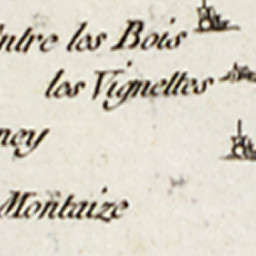 ntre les Bois
les Vignettes
ney
Montaize